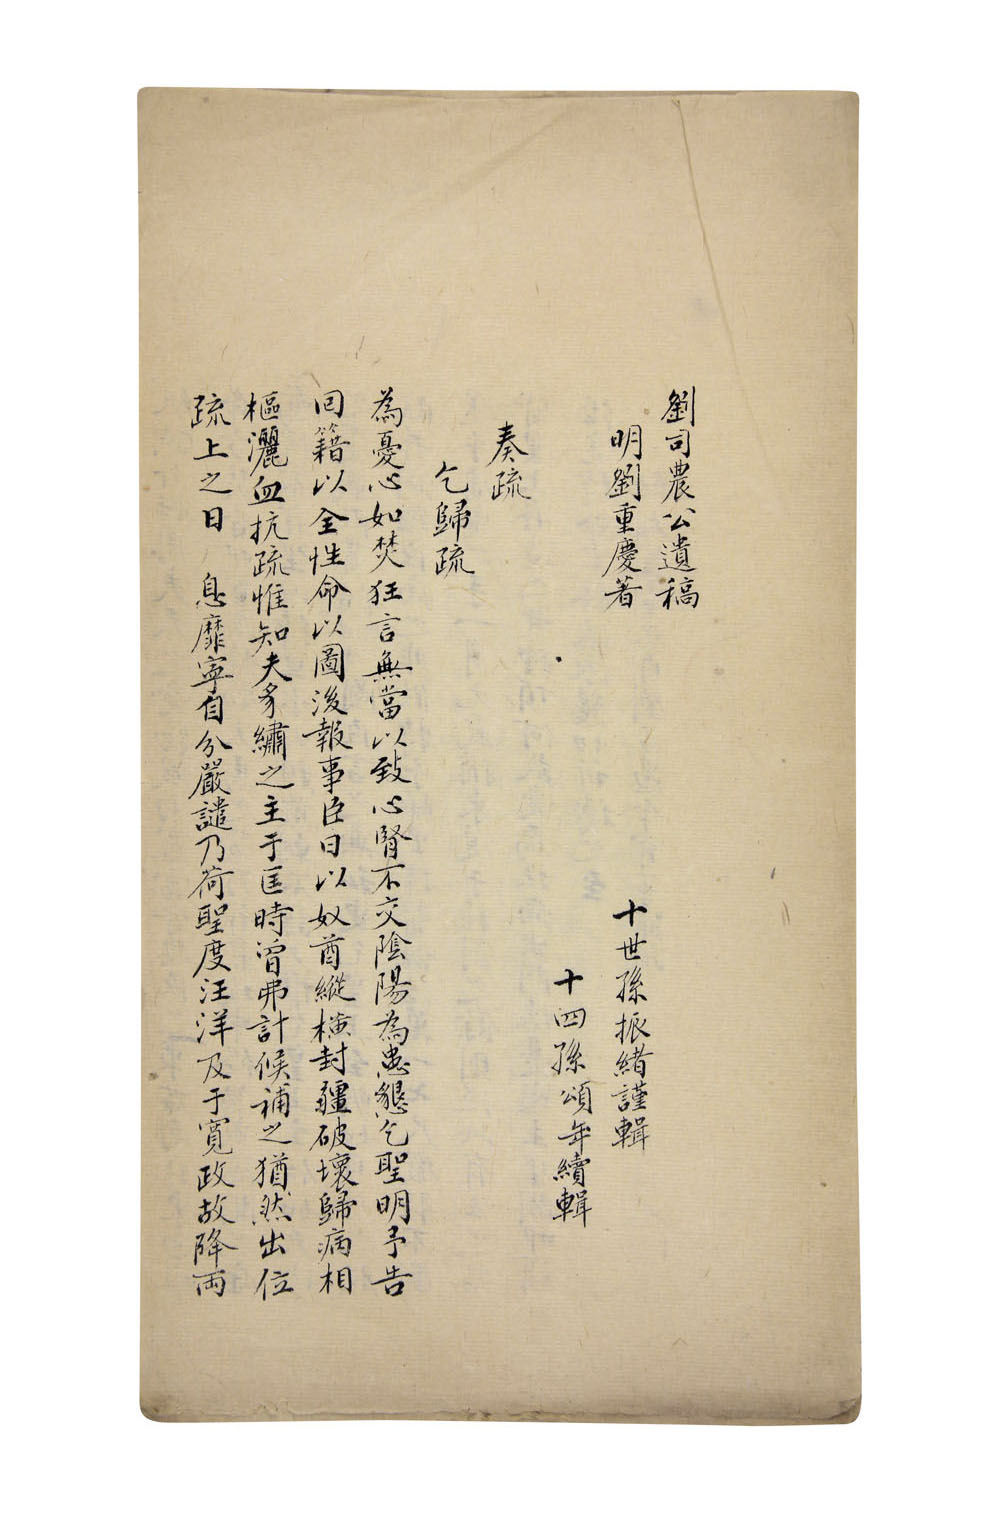 劉司農公遺稿
明劉重慶著
十世孫振緒謹輯
十四孫頌年續輯
奏疏
乞歸疏
為憂心如焚狂言無當以致心腎不交陰陽為患懇乞聖明予告
回籍以全性命以圖後報事臣日以奴酋縱橫封疆破壞歸病相
樞灑血抗疏惟知夫豸繡之主于匡時曾弗計候補之猶然出位
疏上之日 息靡寧自分嚴譴乃荷聖度汪洋及于寬政故降兩